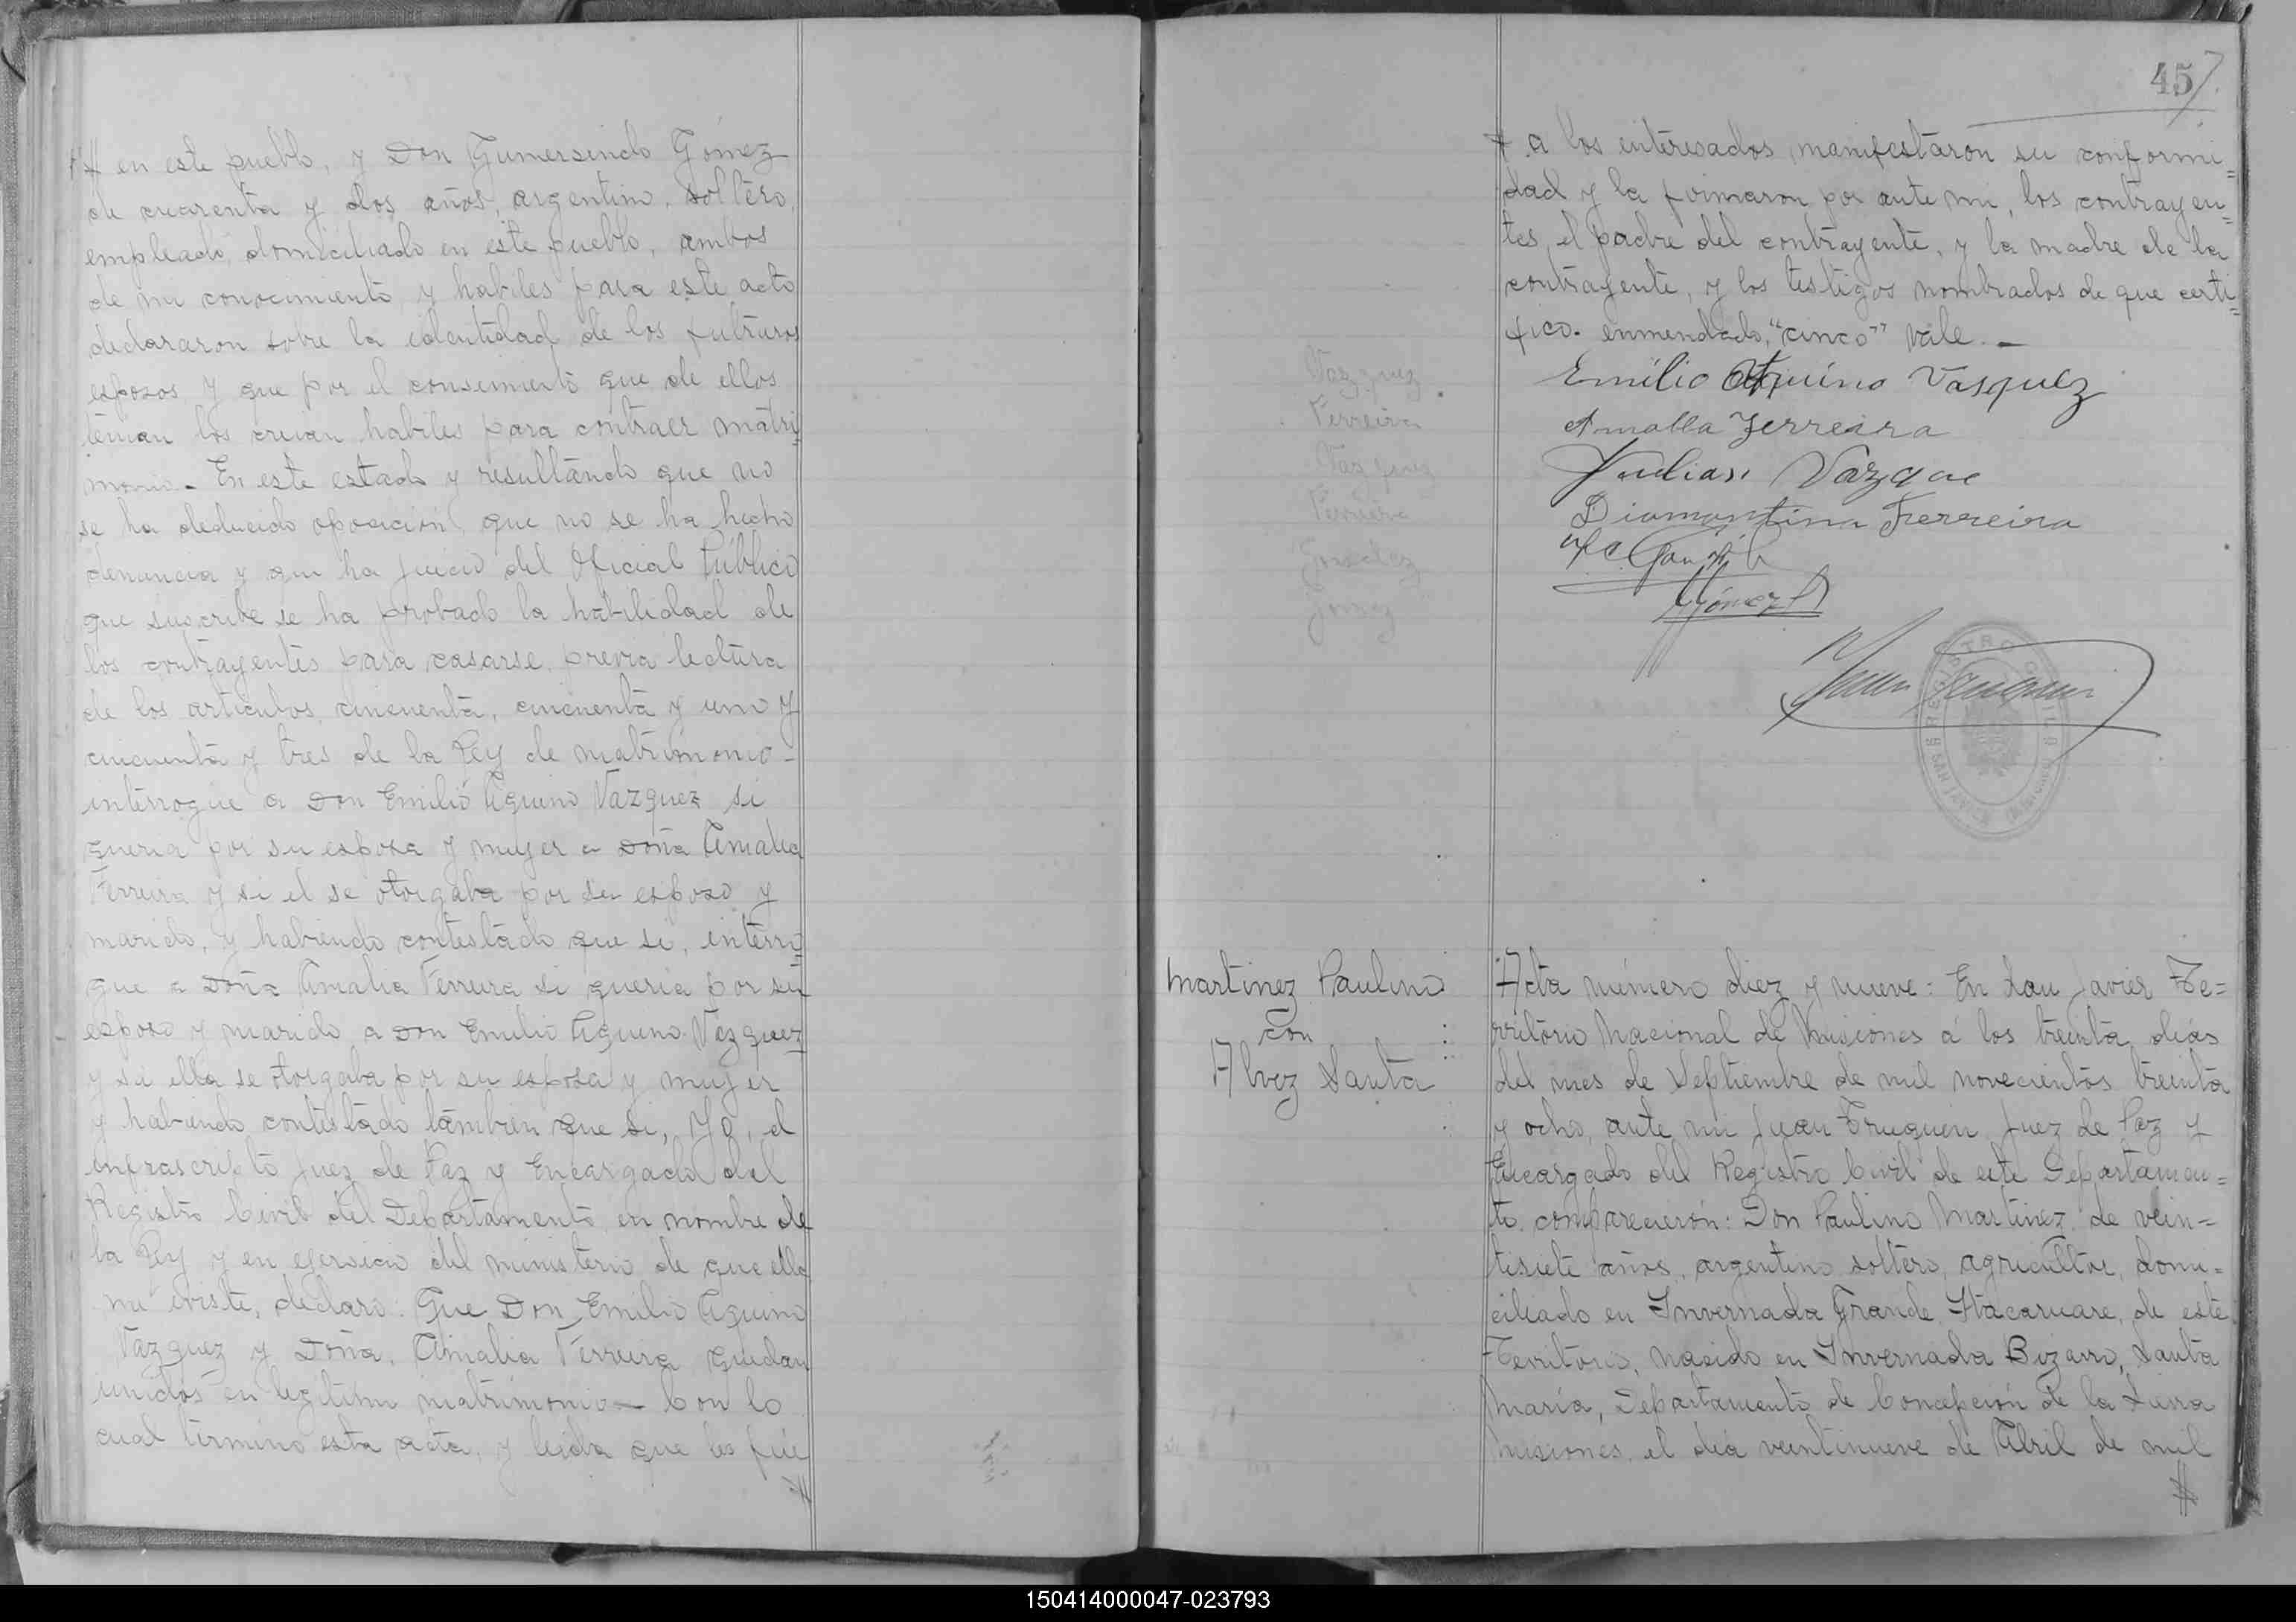 # en este pueblo, y Don Gumersindo Gómez
de cuarenta y dos años, argentino, soltero,
empleado, domiciliado en este pueblo, ambos
de mi conocimiento y habiles para este acto
declararon sobre la identidad de los futuros
esposos y que por el consimiento que de ellos
tenian los creian habiles para contraer matri=
monio. En este estado y resultando que no
se ha deducido oposición, que no se ha hecho
denuncia y que ha juicio del Oficial Público
que suscribe se ha probado la habilidad de
los contrayentes para casarse, previa lectura
de los articulos, cincuenta, cincuenta y uno y
cincuenta y tres de la Ley de matrimonio -
interrogue a Don Emilio Aquino Vazquez si
queria por su esposa y mujer a Doña Amalia
Ferreira y si el se otorgaba por su esposo y
marido, y habiendo contestado que si, interro=
gue a Doña Amalia Ferreira si queria por su
esposo y marido a Don Emilio Aquino Vazquez
y si ella se otorgaba por su esposa y mujer
y habiendo contestado tambien que si, Yo, el
infrascripto Juez de Paz y Encargado del
Registro Civil del Departamento en nombre de
la Ley y en ejersicio del ministerio de que ella
me eviste, declaro: Que Don Emilio Aquino
Vazquez y Doña, Amalia Ferreira quedan
unidos en legitimo matrimonio - Con lo
cual termino esta acta, y leida que les fué
#
457
# a los interesados manifestaron su conformi=
dad y la firmaron por ante mi, los contrayen=
tes, el padre del contrayente, y la madre de la
contrayente, y los testigos nombrados de que certi=
fico. enmendado, "cinco" vale. -
Vazquez
Ferreira
Vazquez
Ferreira
Gonzalez
Gomez
Emilio Aquino Vasquez
Amalia Ferreira
Julian Vazque
Diamantina Ferreira
Gómez
REGISTRO CIVIL
SAN JAVIER
Martinez Paulino
con
Alvez Santa
Acta número diez y nueve: En San Javier Te=
rritorio Nacional de Misiones á los treinta dias
del mes de Septiembre de mil novecientos treinta
y ocho, ante mi Juan Truquin Juez de Paz y
Encargado del Registro Civil de este Departamen=
to, comparecieron: Don Paulino Martinez de vein=
tisiete años, argentino, soltero, agricultor, domi=
ciliado en Invernada Grande, Itacaruare, de este
Territorio, nacido en Invernada Bizarro, Santa
Maria, Departamento de Concepción de la Sierra
Misiones, el dia veintinueve de Abril de mil
#
150414000047-023793